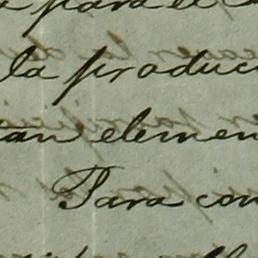 para el
la produc
an elemen
Para con